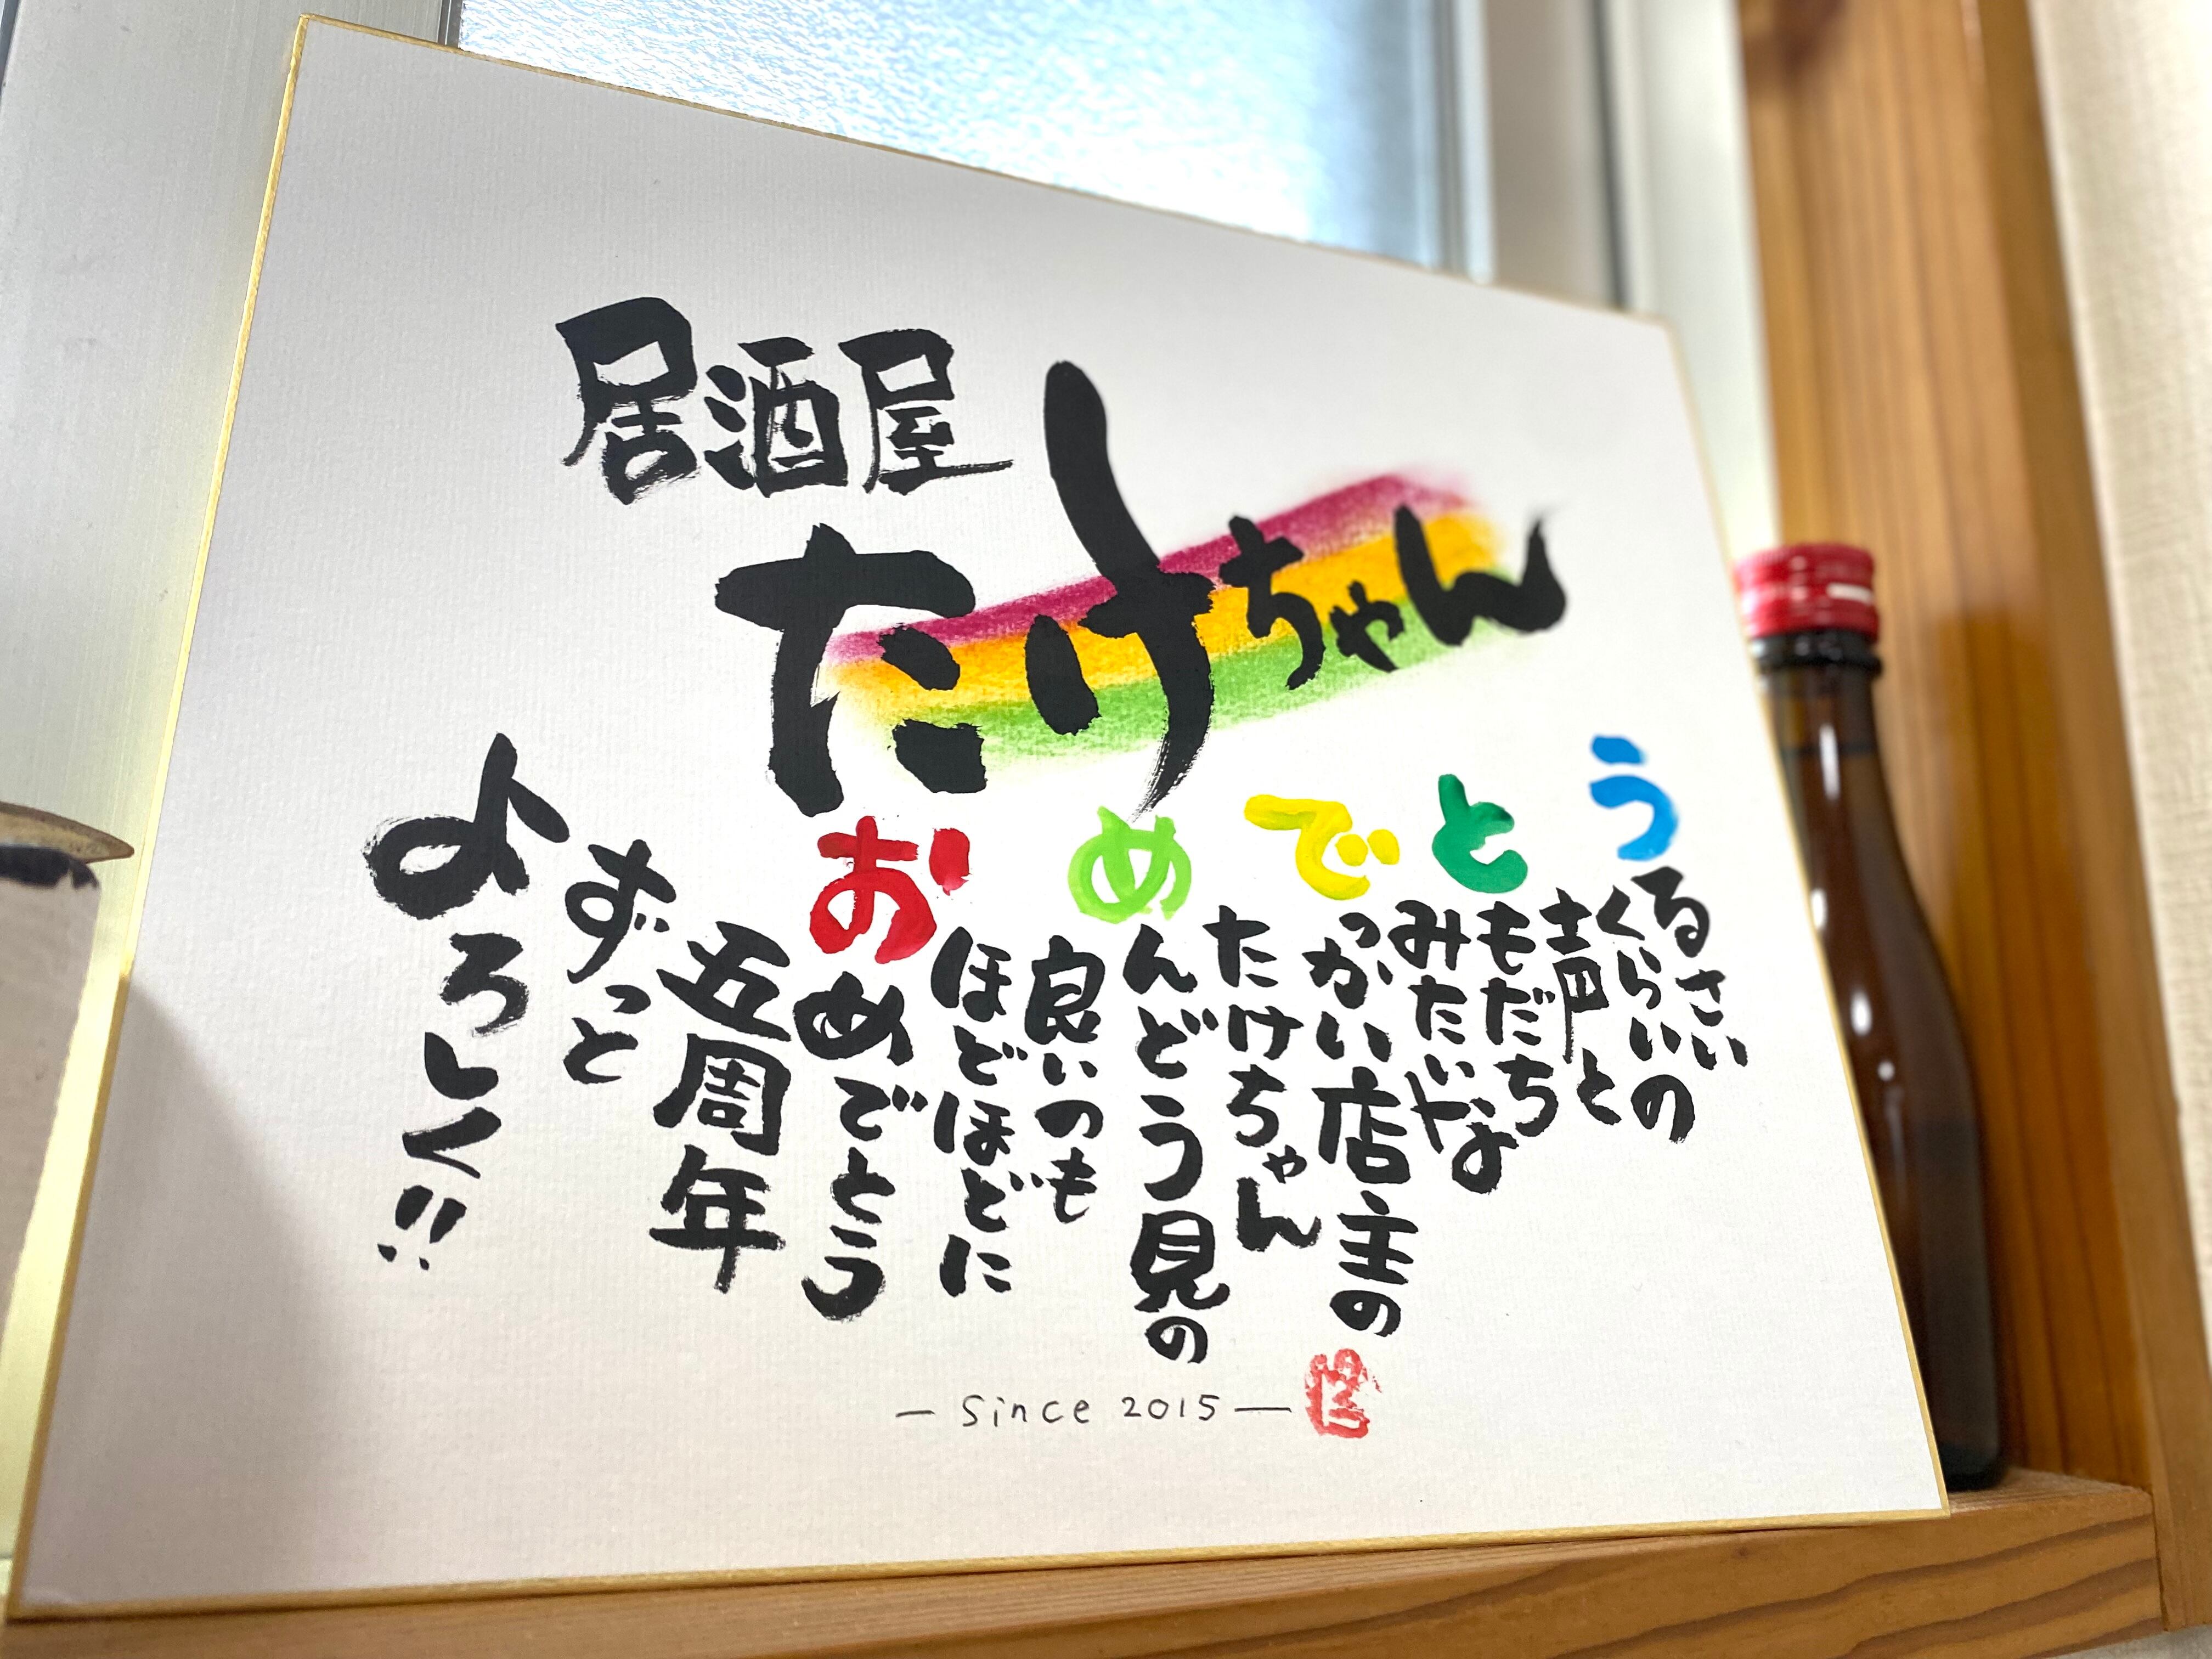 居酒屋
たけちゃん
うるさい
くらいの
声と
ともだち
みたいな
でっかい店主の
たけちゃん
めんどう見の
良いのも
ほどほどに
おめでとう
五周年
ずっと
よろしく!!
- Since 2015 -